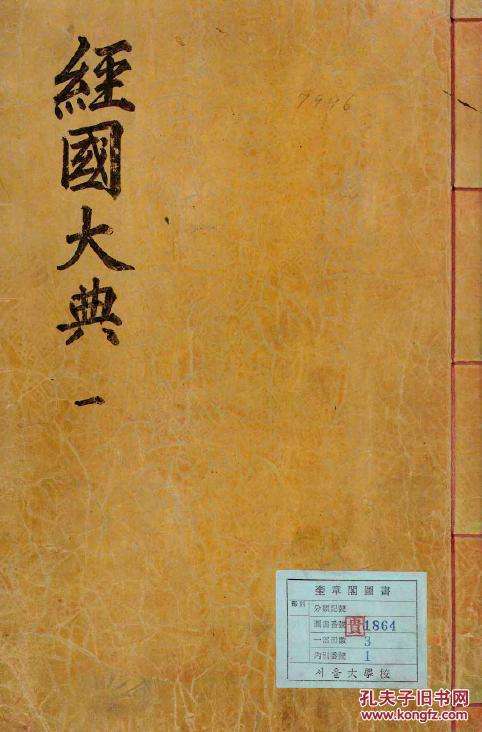 經國大典 一
7446
奎章閣圖書
분류記號
圖書番號 貴 1864
一部冊數 3
內別番號 1
서울大學校
孔夫子旧书网
www.kongfz.com